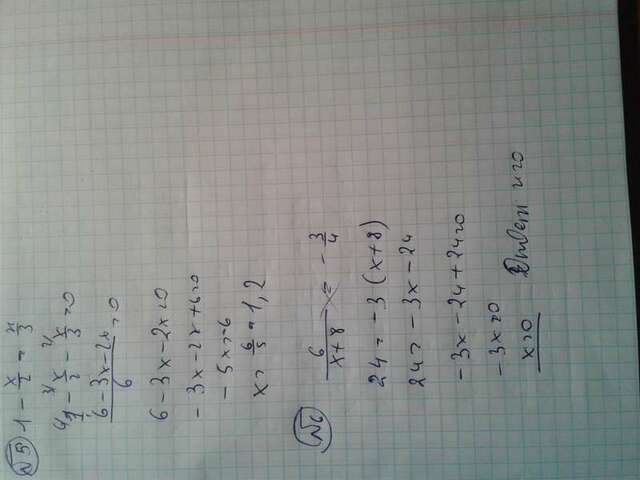 №5 1 - x/2 = x/3
6/1 - 3/x/2 - 2/x/3 = 0
6 - 3x - 2x / 6 = 0
6 - 3x - 2x = 0
- 3x - 2x + 6 = 0
- 5x = -6
x = 6/5 = 1,2
№6 6/(x+8) = - 3/4
24 = -3 (x+8)
24 = -3x - 24
-3x - 24 + 24 = 0
-3x = 0
x = 0 Ответ x = 0